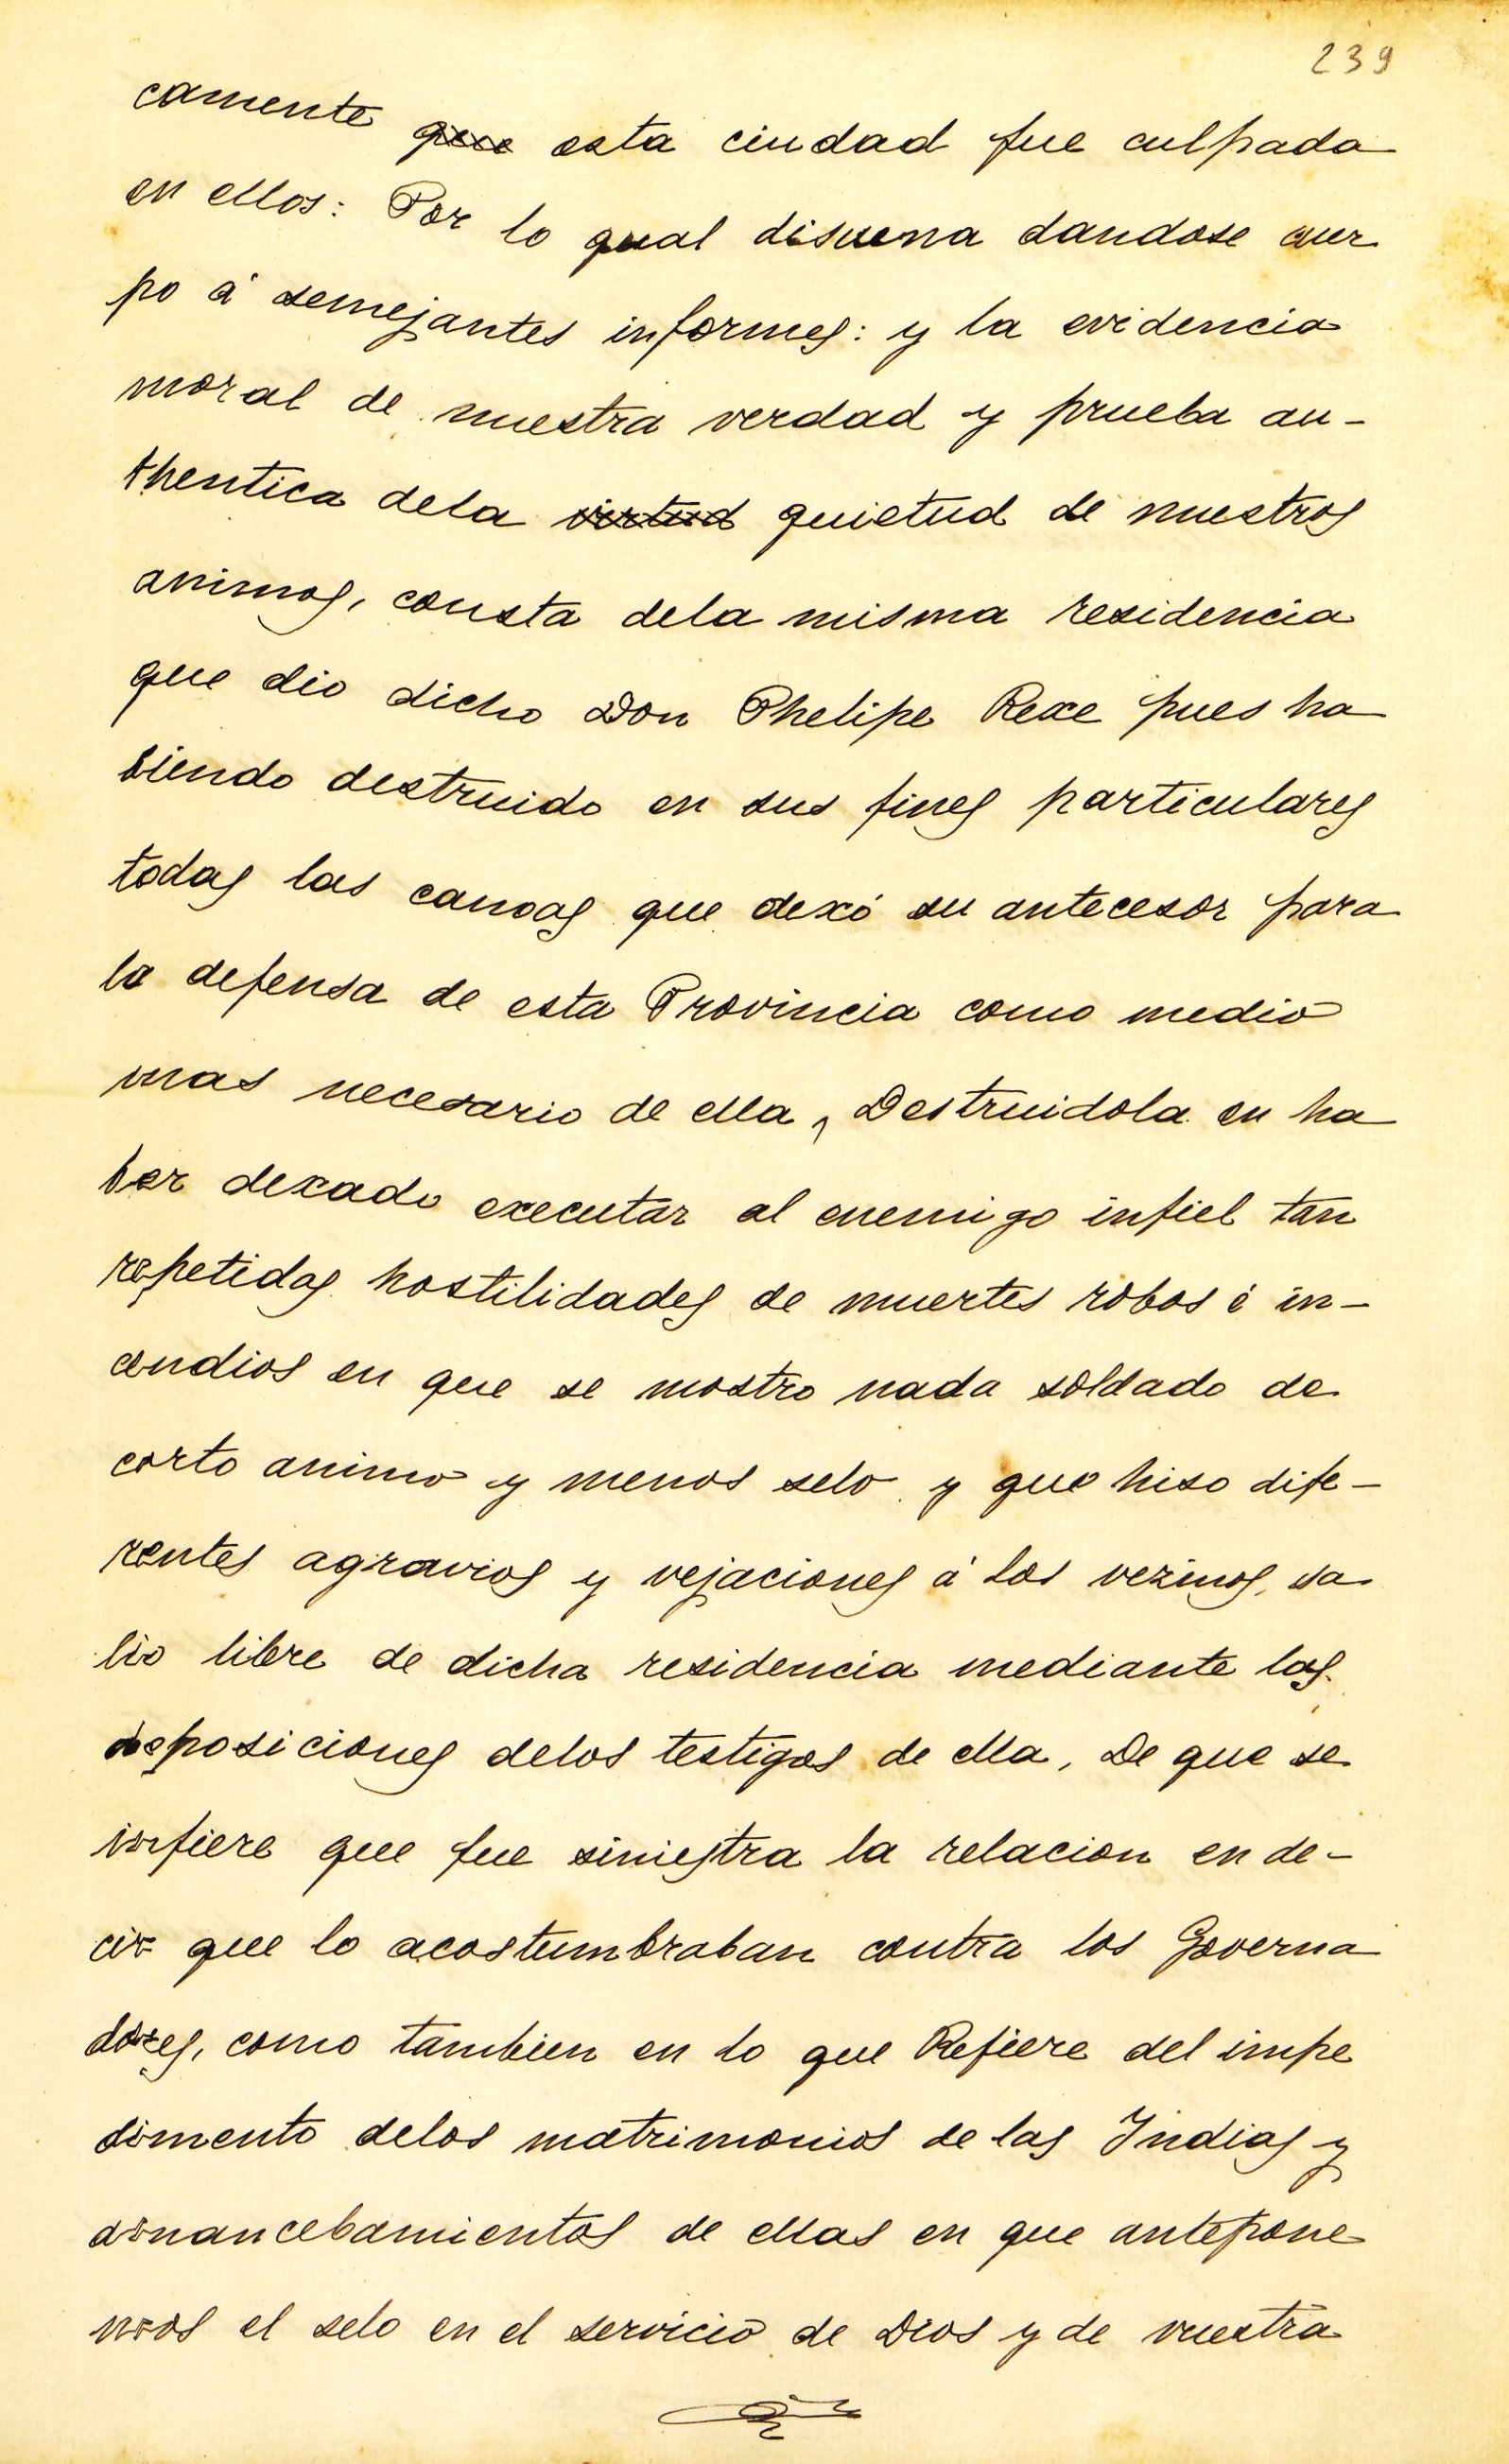 239
camente ~~que~~ esta ciudad fue culpada
en ellos: Por lo qual disuena dandose cuer
po á semejantes informes: y la evidencia
moral de nuestra verdad y prueba au-
thentica dela ~~virtud~~ quietud de nuestros
animos, consta dela misma residencia
que dio dicho Don Phelipe Rexe pues ha
biendo destruido en sus fines particulares
todas las canoas que dexó su antecesor para
la defensa de esta Provincia como medio
mas necesario de ella, Destruidola en ha
ber dexado executar al enemigo infiel tan
repetidas hostilidades de muertes robos é in-
cendios en que se mostro nada soldado de
corto animo y menos selo y que hiso dife-
rentes agravios y vejaciones á los vezinos, sa
lio libre de dicha residencia mediante las
deposiciones delos testigos de ella, De que se
infiere que fue siniestra la relacion en de-
cir que lo acostumbraban contra los Governa
dores, como tambien en lo que Refiere del impe
dimento delos matrimonios de las Indias y
amancebamientos de ellas en que antepone
mos el selo en el servicio de Dios y de vuestra